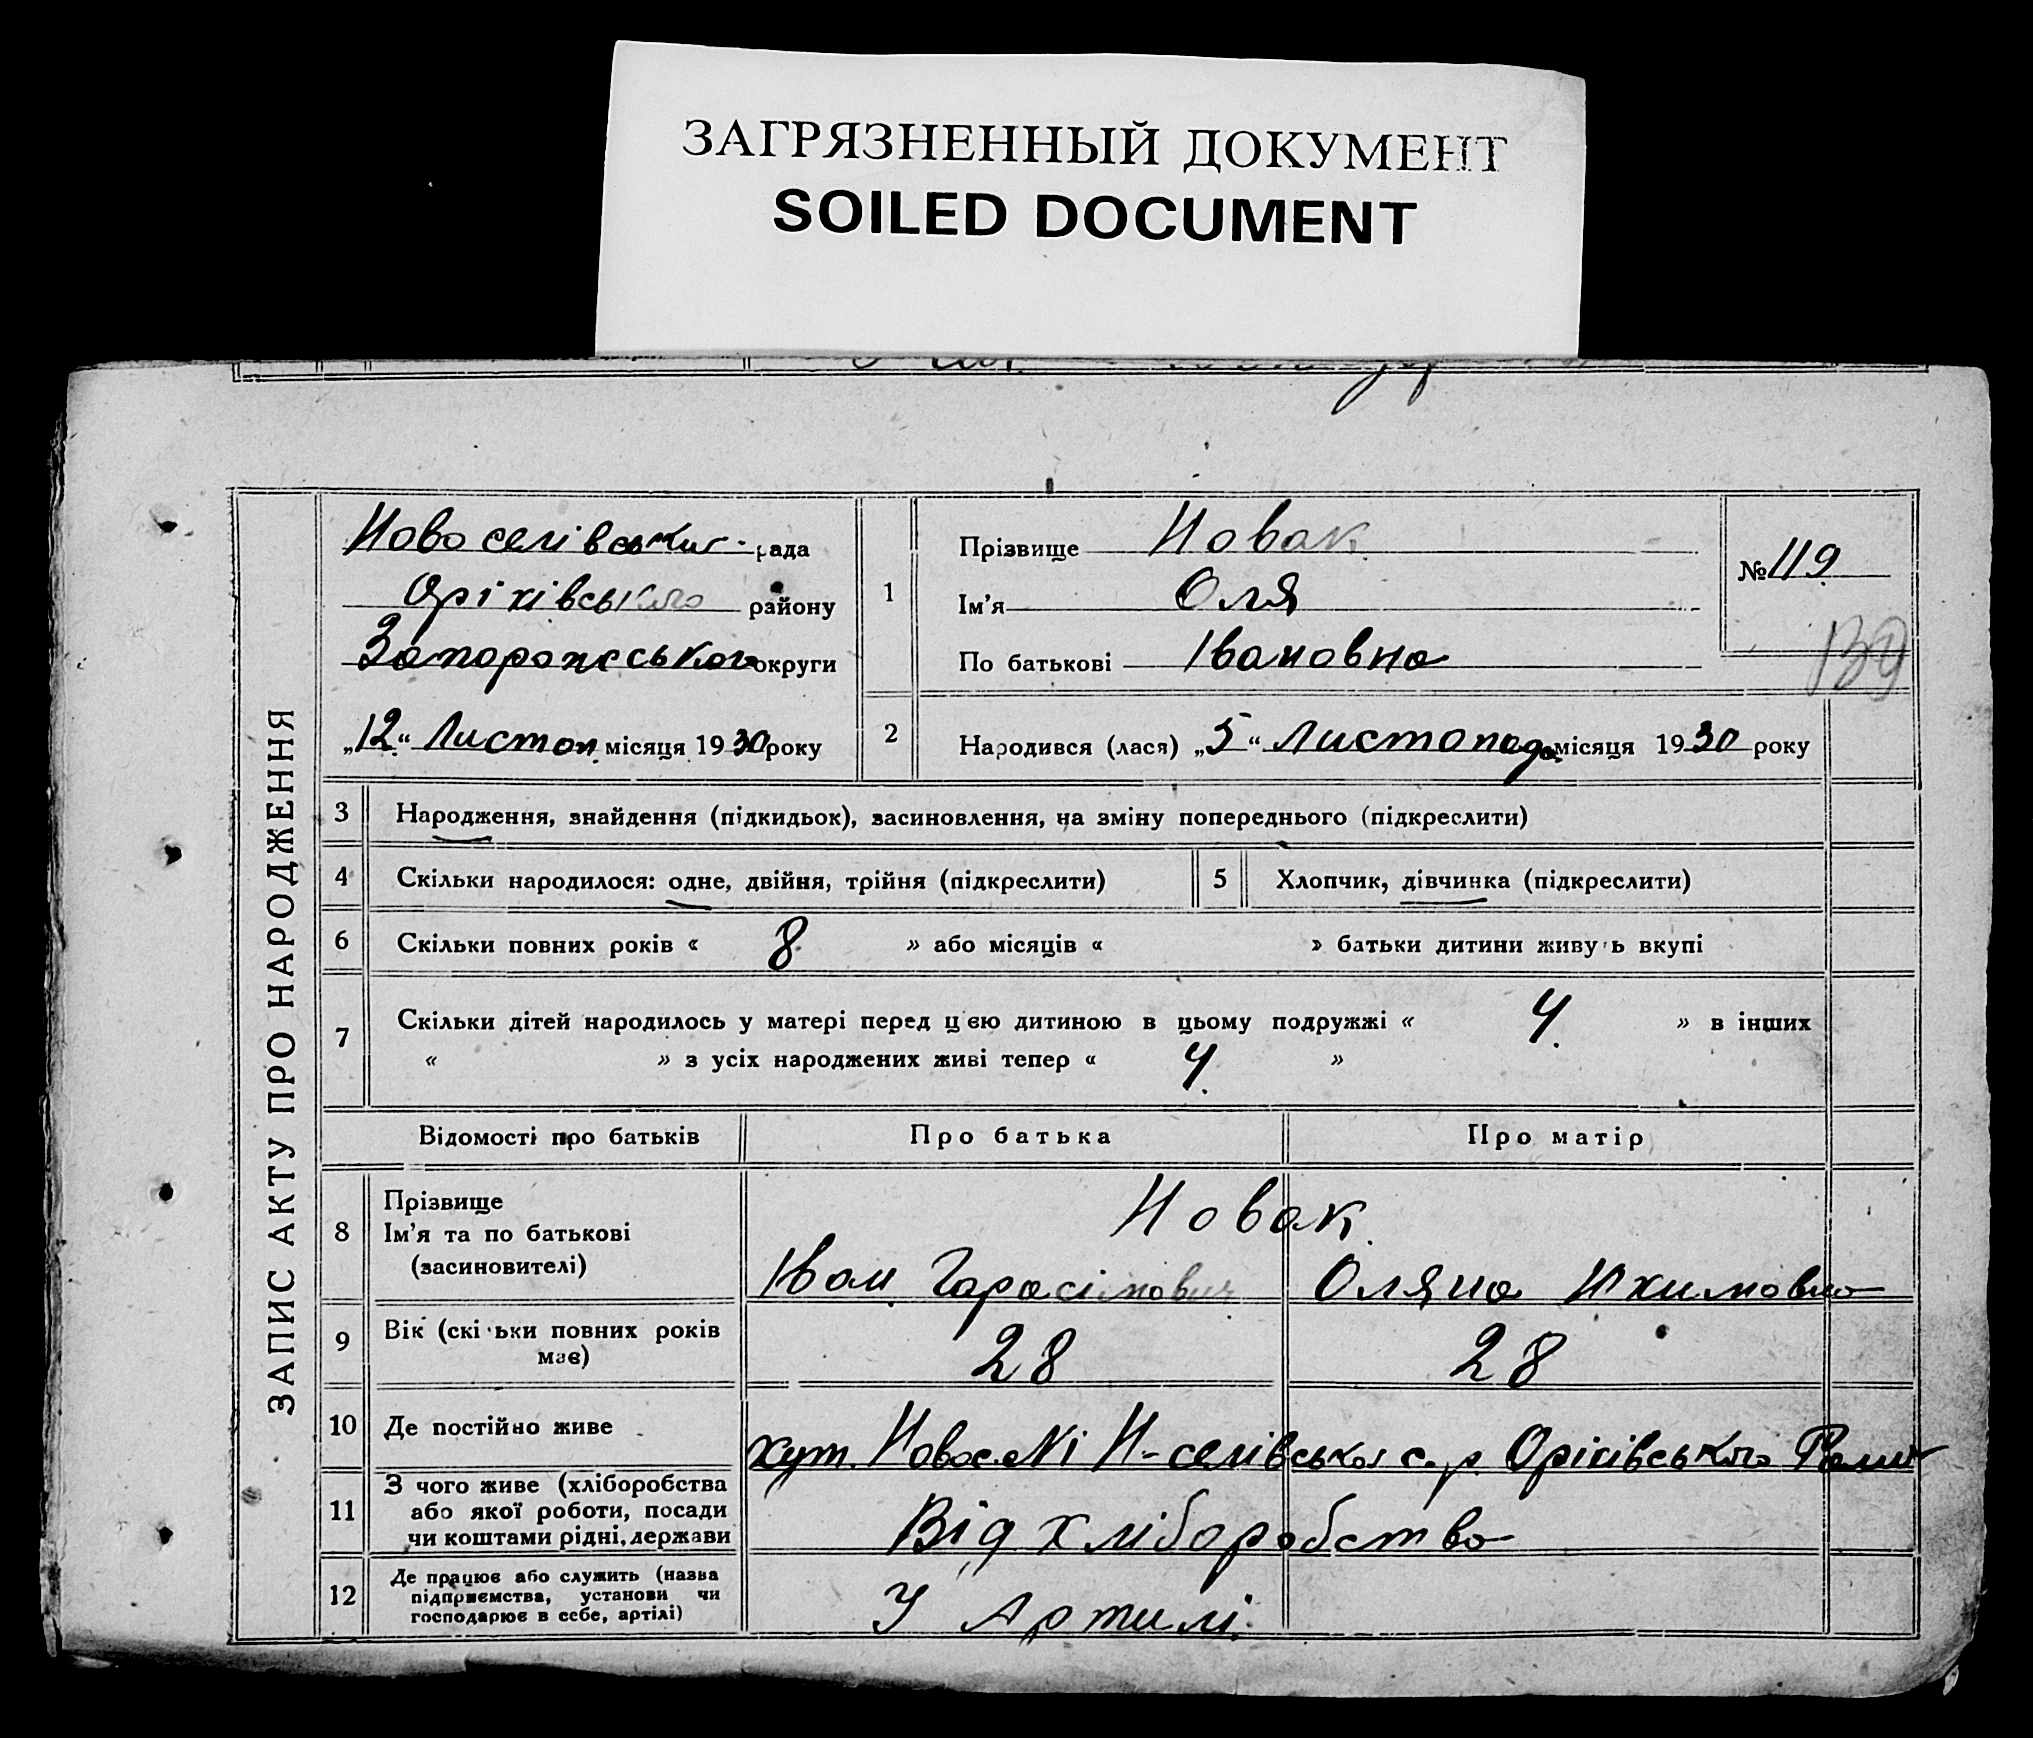 ЗАГРЯЗНЕННЫЙ ДОКУМЕНТ
SOILED DOCUMENT
ЗАПИС АКТУ ПРО НАРОДЖЕННЯ
Новоселівська рада
Оріхівського району
Запорожського округи
„12“ Листоп. місяця 1930 року
1
Прізвище Новак
Ім’я Оля
По батькові Івановна
№ 119
139
2
Народився (лася) „5“ Листопада місяця 1930 року
3 Народження, знайдення (підкидьок), засиновлення, на зміну попереднього (підкреслити)
4 Скільки народилося: одне, двійня, трійня (підкреслити)
5 Хлопчик, дівчинка (підкреслити)
6 Скільки повних років « 8 » або місяців « » батьки дитини живуть вкупі
7 Скільки дітей народилось у матері перед цією дитиною в цьому подружжі « 4 » в інших
« » з усіх народжених живі тепер « 4 »
Відомості про батьків Про батька Про матір
8 Прізвище
Ім’я та по батькові
(засиновителі)
Новак
Іван Гарасімович Оляна Якимовна
9 Вік (скільки повних років
має)
28 28
10 Де постійно живе
хут. Новоселкі Н-селівської с. р. Оріхівського
11 З чого живе (хліборобства
або якої роботи, посади
чи коштами рідні, держави
Від хліборобства
12 Де працює або служить (назва
підприємства, установи чи
господарює в себе, артілі)
У Артилі